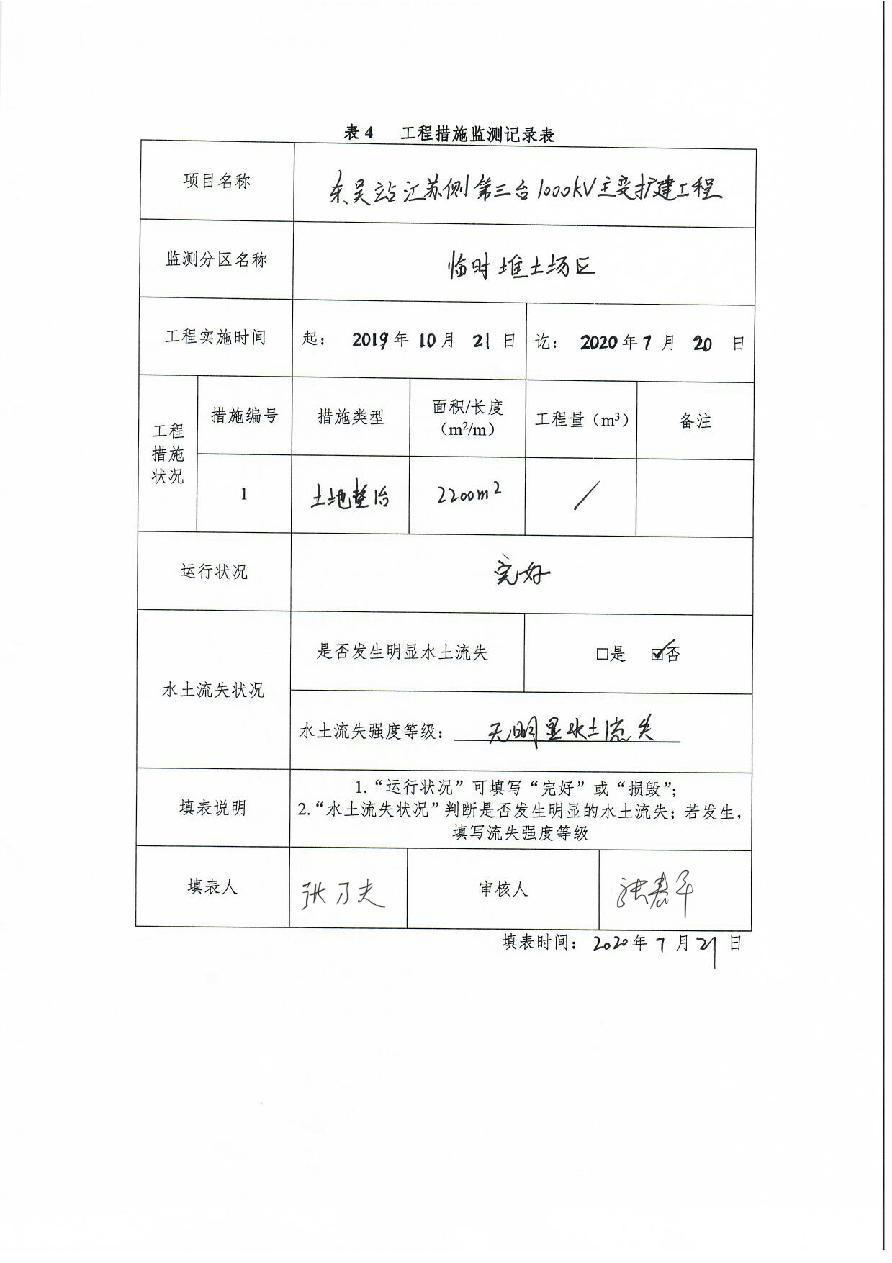 表4 工程措施监测记录表
项目名称 东吴站江苏侧第三台1000kV主变扩建工程
监测分区名称 临时堆土场区
工程实施时间 起: 2019年10月21日 讫: 2020年7月20日
工程措施状况 措施编号 措施类型 面积/长度(m²/m) 工程量(m³) 备注
1 土地整治 2200m² /
运行状况 完好
水土流失状况 是否发生明显水土流失 □是 ☑否
水土流失强度等级: 无明显水土流失
填表说明 1.“运行状况”可填写“完好”或“损毁”;
2.“水土流失状况”判断是否发生明显的水土流失; 若发生,
填写流失强度等级
填表人 审核人
填表时间: 2020年7月21日